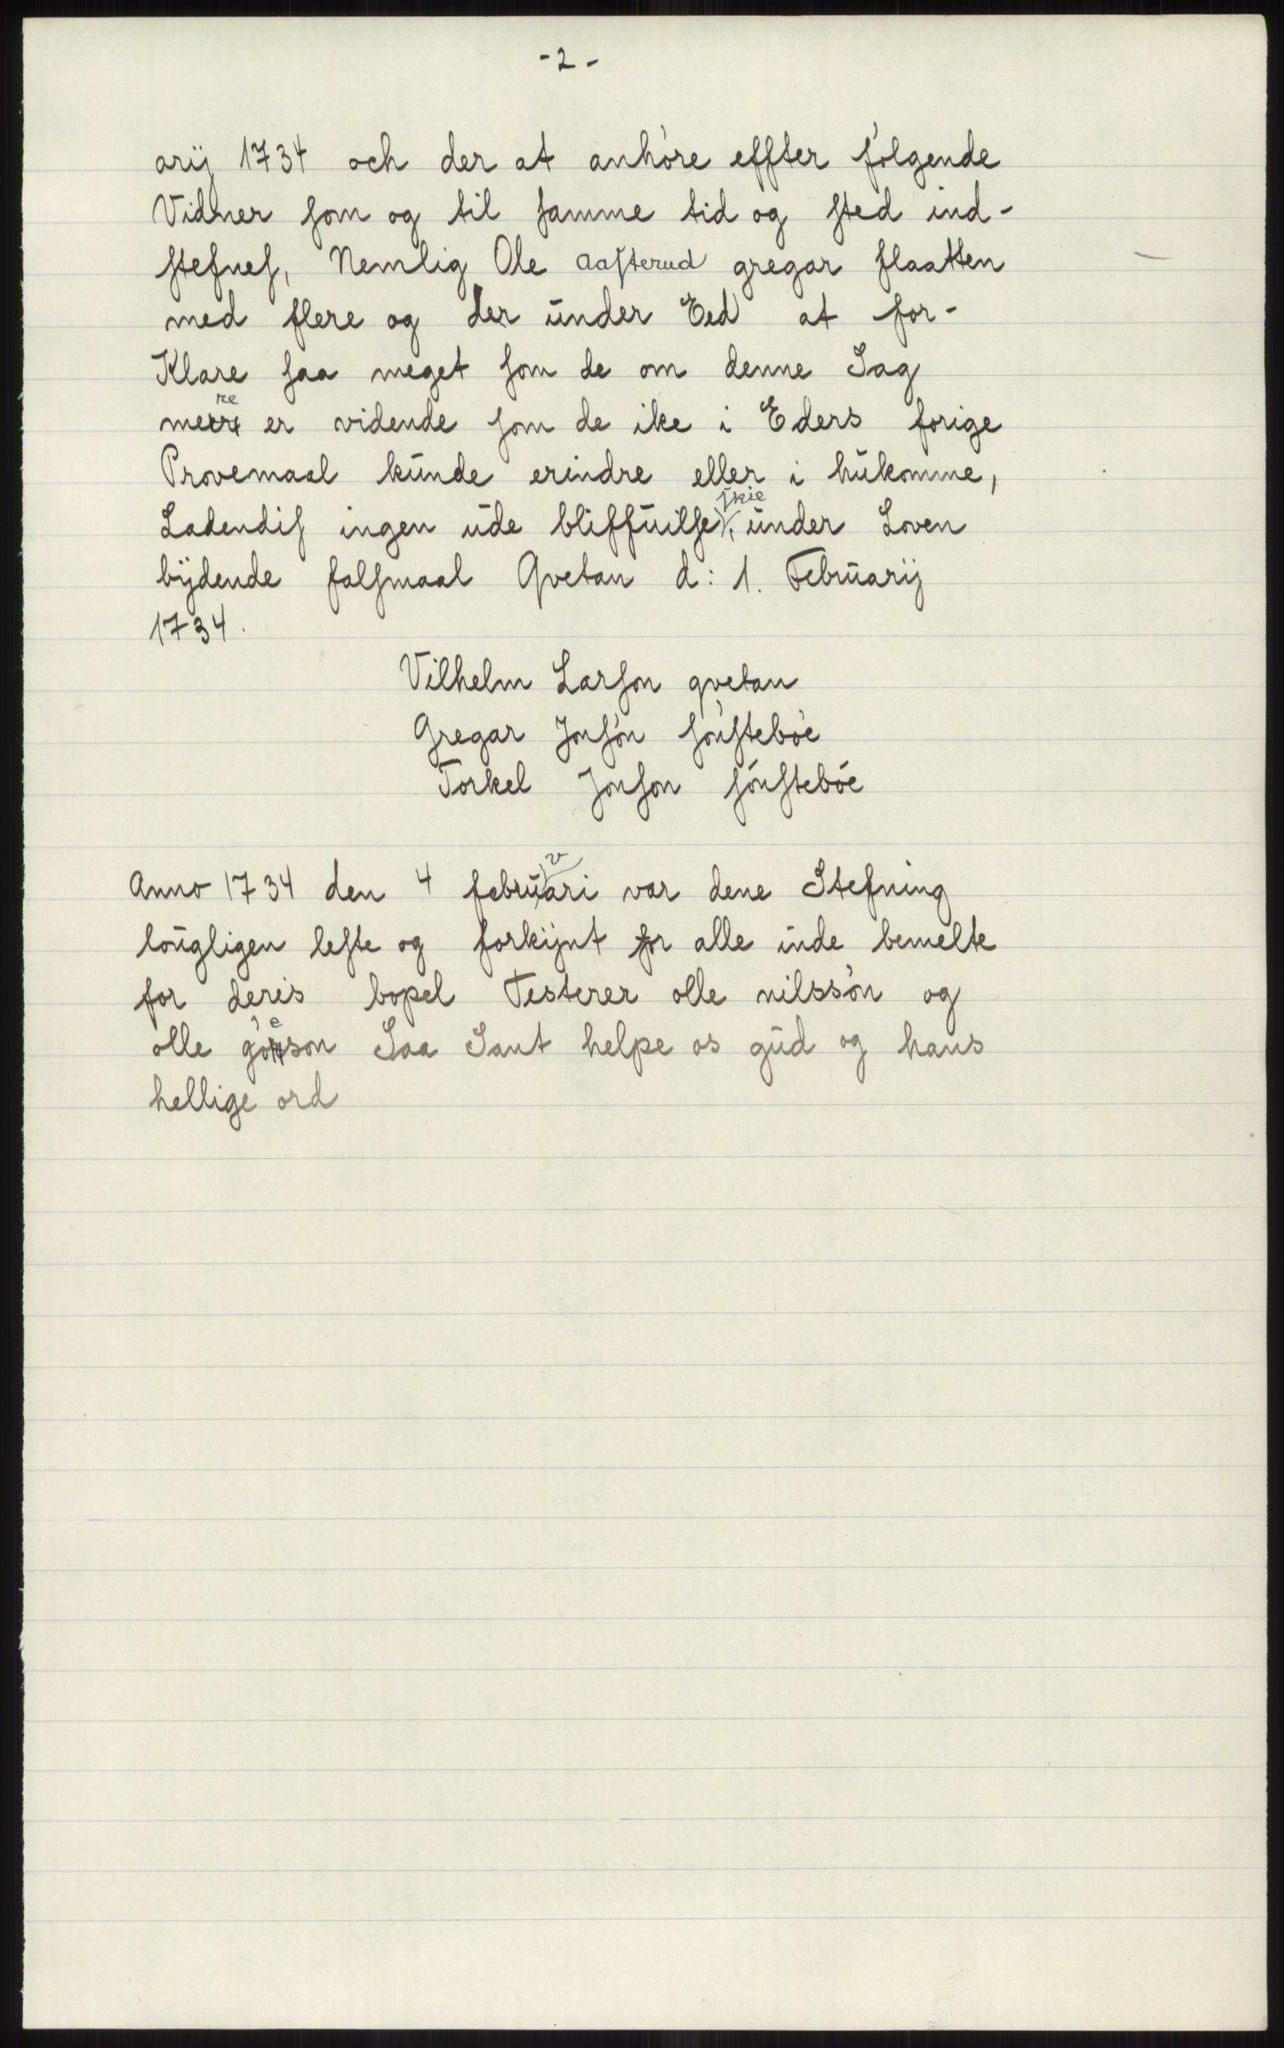 -2-
arij 1734 och der at anhóre effter fólgende
Vidner ſom og til ſamme tid og ſted ind-
ſtefneſ, Nemlig Ole Aaſterud gregar flaatten
med flere og der ūnder Eed at for-
Klare ſaa meget ſom de om denne Sag
meere er vidende ſom de ike i Eders forige
Provemaal kūnde erindre eller i hūkomme,
Ladendiſ ingen ūde bliffūilſe ſkie, ūnder Loven
bÿdende falſmaal Qvetan d: 1. Februarij
1734.
Vilhelm Larſon qvetan
Gregar Jonſón ſónſtebóe
Torkel Jonſon ſónſtebóe
Anno 1734 den 4 februvari var dene Stefning
loūgligen leſte og forkijnt for alle inde bemelte
for deris bopel Testerer olle nilssón og
olle góeson Saa Sant helpe os gūd og hans
hellige ord